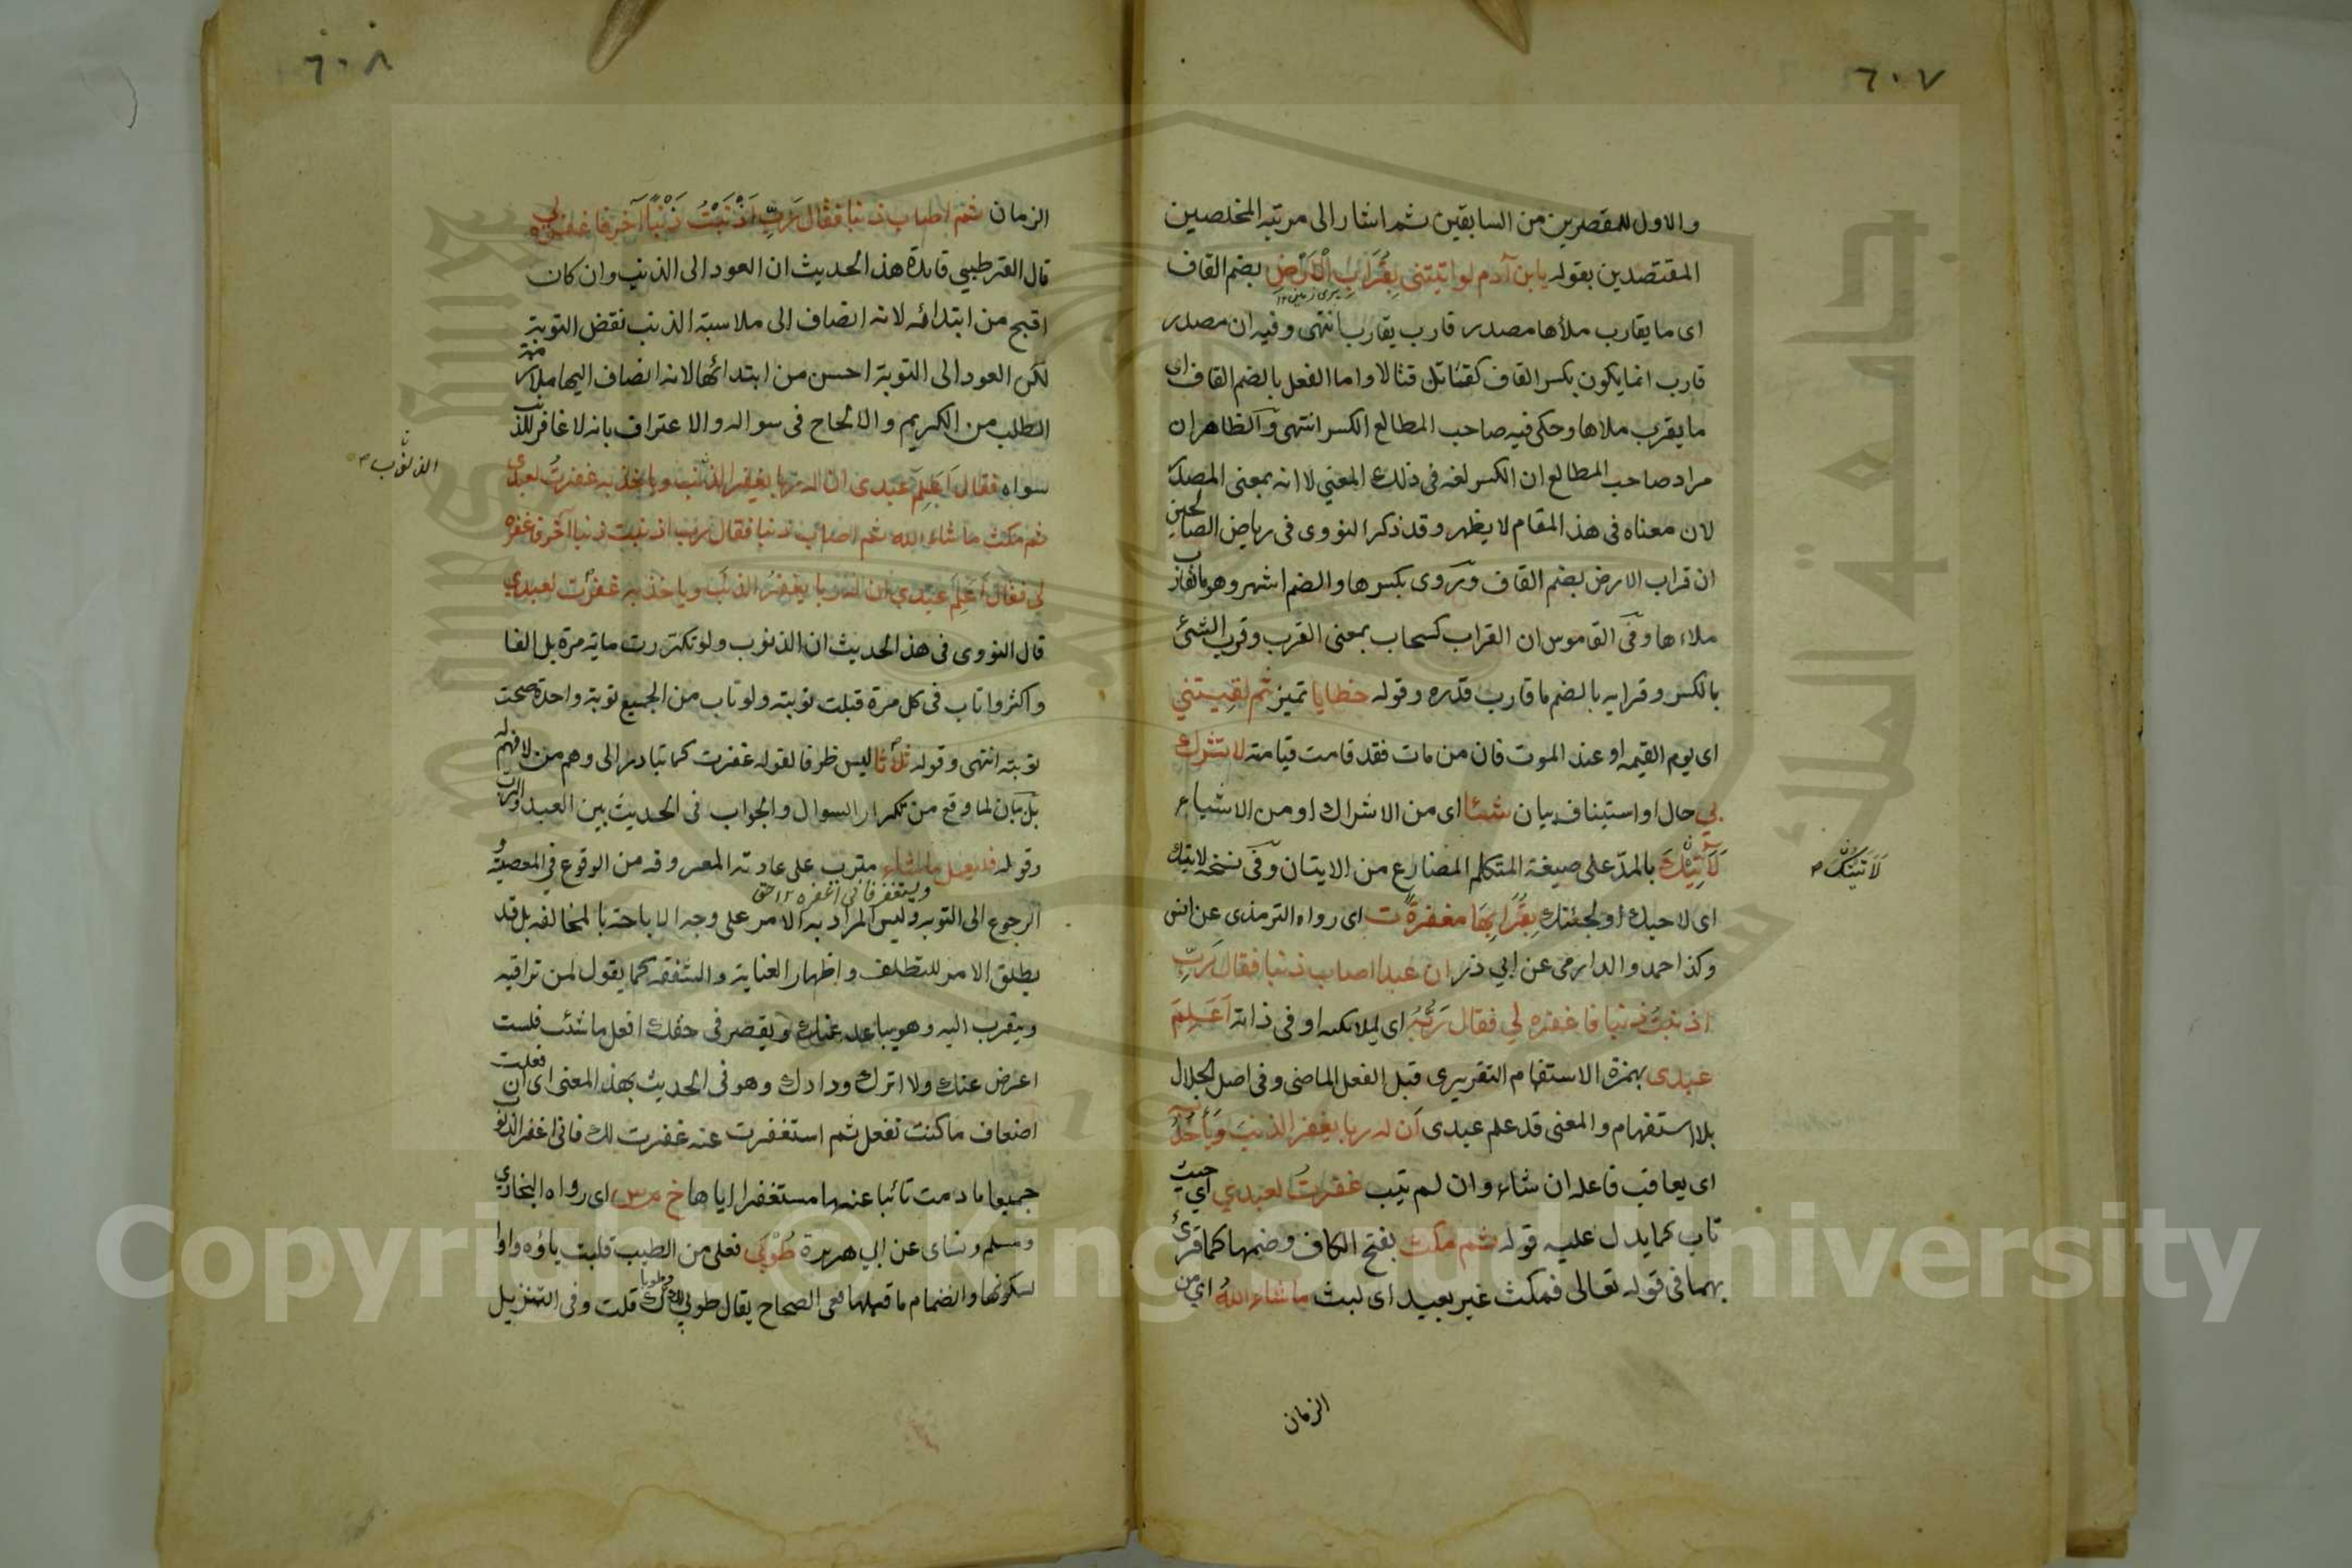 ٦٠٧
والاول للمقصرين من السابقين ثم اشار الى مرتبة المخلصين
المقتصدين بقوله يا بن آدم لو اتيتنى بِقُرَابِ الْاَرْضِ بضم القاف
اى ما يقارب ملأها مصدر قارب يقارب انتهى وفيه ان مصدر
قارب انما يكون بكسر القاف كقتاتل قتالا واما الفعل بالضم القاف اى
ما يقرب ملاها وحكى فيه صاحب المطالع الكسر انتهى والظاهر ان
مراد صاحب المطالع ان الكسر لغة فى ذلك المعني لا انه بمعنى المصدر
لان معناه فى هذ المقام لا يظهر وقد ذكر النووى فى رياض الصالحين
ان قراب الارض بضم القاف وروى بكسرها والضم اشهر وهو ما يقارب
ملاءها وفى القاموس ان القراب كسحاب بمعنى القرب وقرب الشئ
بالكسر وقرابه بالضم ما قارب قدره وقوله خطايا تميز ثم لقيتني
اى يوم القيمه او عند الموت فان من مات فقد قامت قيامته لا تشرك
بي حال او استيناف بيان شئا اى من الاشراك او من الاشياء
لَآتِيَنَّكَ بالمدّ على صيغة المتكلم المضارع من الايتان وفى نسخه لايتك
لَاَتَيْتُكَ
اى لاحبك او لجئتك بِقُرَابِهَا مغفرةً ت اى رواه الترمذى عن انس
وكذ احمد والدارمى عن ابي ذر ان عبدا اصاب ذنبا فقال رَبِّ
اذنبت ذنبا فاغفره لي فقال رَبُّهُ اى لملائكه او فى ذاته اَعَلِمَ
عبدى بهمزة الاستفهام التقريرى قبل الفعل الماضى وفى اصل الجلال
بلا استفهام والمعنى قد علم عبدى اَن له ربا يغفر الذنب وَيَأخُذُ
اى يعاقب فاعله ان شاء وان لم يتب غفرتُ لعبدي اي حيث
تاب كما يدل عليه قوله ثم مكث بفتح الكاف وضمها كما قرئ
بهما فى قوله تعالى فمكث غير بعيد اى لبث ما شاء اللهُ اي من
الزمان
٦٠٨
الزمان ثم اصاب ذنبا فقال رَبِّ اَذْنَبْتُ ذَنْبًا آخر فاغفره لي
قال القرطبي فايدة هذ الحديث ان العود الى الذنب وان كان
اقبح من ابتدائه لانه انضاف الى ملابسة الذنب نقض التوبة
لكن العود الى التوبة احسن من ابتدائها لانه انضاف اليها ملازمة
الطلب من الكريم والالحاح فى سواله والاعتراف بانه لا غافر للذنب
سواه فقال اَعَلِمَ عبدى ان له ربا يغفر الذنب وياخذ به غفرتُ لعبدى
الذنوب
ثم مكث ما شاء الله ثم اصاب ذنبا فقال رب اذنبت ذنبا آخر فاغفره
لي فقال اَعَلِمَ عبدي ان له ربا يغفرُ الذنبَ وياخذ به غفرت لعبدي
قال النووى فى هذ الحديث ان الذنوب ولو تكررت ماية مرة بل الفا
واكثر وا تاب فى كل مرة قبلت توبته ولو تاب من الجميع توبة واحدة صحت
توبته انتهى وقوله ثلاثا ليس ظرفا لقوله غفرت كما تبادر الى وهم من لا فهم له
بل بيان لما وقع من تكرار السوال والجواب فى الحديث بين العبد والرب
وقوله فليعمل ما شاء مترتب على عادته المعروفه من الوقوع في المعصية و
ويستغفر فانى اغفره ١٢
الرجوع الى التوبه وليس المراد به الامر على وجه الاباحة بالمخالفه بل قد
يطلق الامر للتطلف واظهار العناية والشفقه كما يقول لمن تراقبه
ويتقرب اليه وهو يباعد عنك ويقصر فى حقك افعل ما شئت فلست
اعرض عنك ولا اترك ودادك وهو فى الحديث بهذ المعنى اى ان فعلت
اضعاف ما كنت تفعل ثم استغفرت عنه غفرت لك فانى اغفر الذنوب
جميعا ما دمت تائبا عنها مستغفرا اياها خ م س اى رواه البخاري
ومسلم ونساى عن ابي هريرة طُوْبَى فعلى من الطيب قلبت ياؤه واوا
لسكونها وانضمام ما قبلها فعى الصحاح يقال طوبي لك وطوباك قلت وفى التنزيل
Copyright © King Saud University